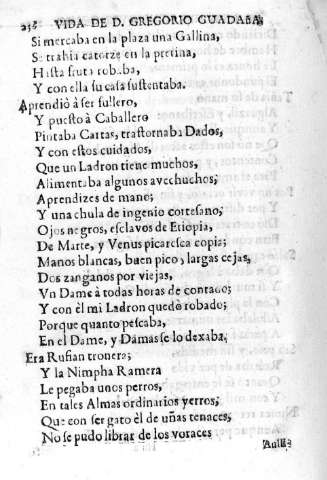 236 VIDA DE D. GREGORIO GUADAÑA
Si mercaba en la plaza una Gallina,
Se trahia catorze en la pretina,
Hasta fruta robaba,
Y con ella su casa sustentaba.
Aprendió à ser fullero,
Y puesto à Caballero
Pintaba Cartas, trastornaba Dados,
Y con estos cuidados,
Que un Ladron tiene muchos,
Alimentaba algunos avechuchos;
Aprendizes de mano;
Y una chula de ingenio cortesano;
Ojos negros, esclavos de Etiopia,
De Marte, y Venus picaresca copia;
Manos blancas, buen pico, largas cejas,
Dos zanganos por viejas,
Vn Dame à todas horas de contado;
Y con èl mi Ladron quedò robado;
Porque quanto pescaba,
En el Dame, y Damas se lo dexaba,
Era Rufian tronero;
Y la Nimpha Ramera
Le pegaba unos perros,
En tales Almas ordinarios yerros;
Que con ser gato èl de uñas tenaces,
No se pudo librar de los voraces